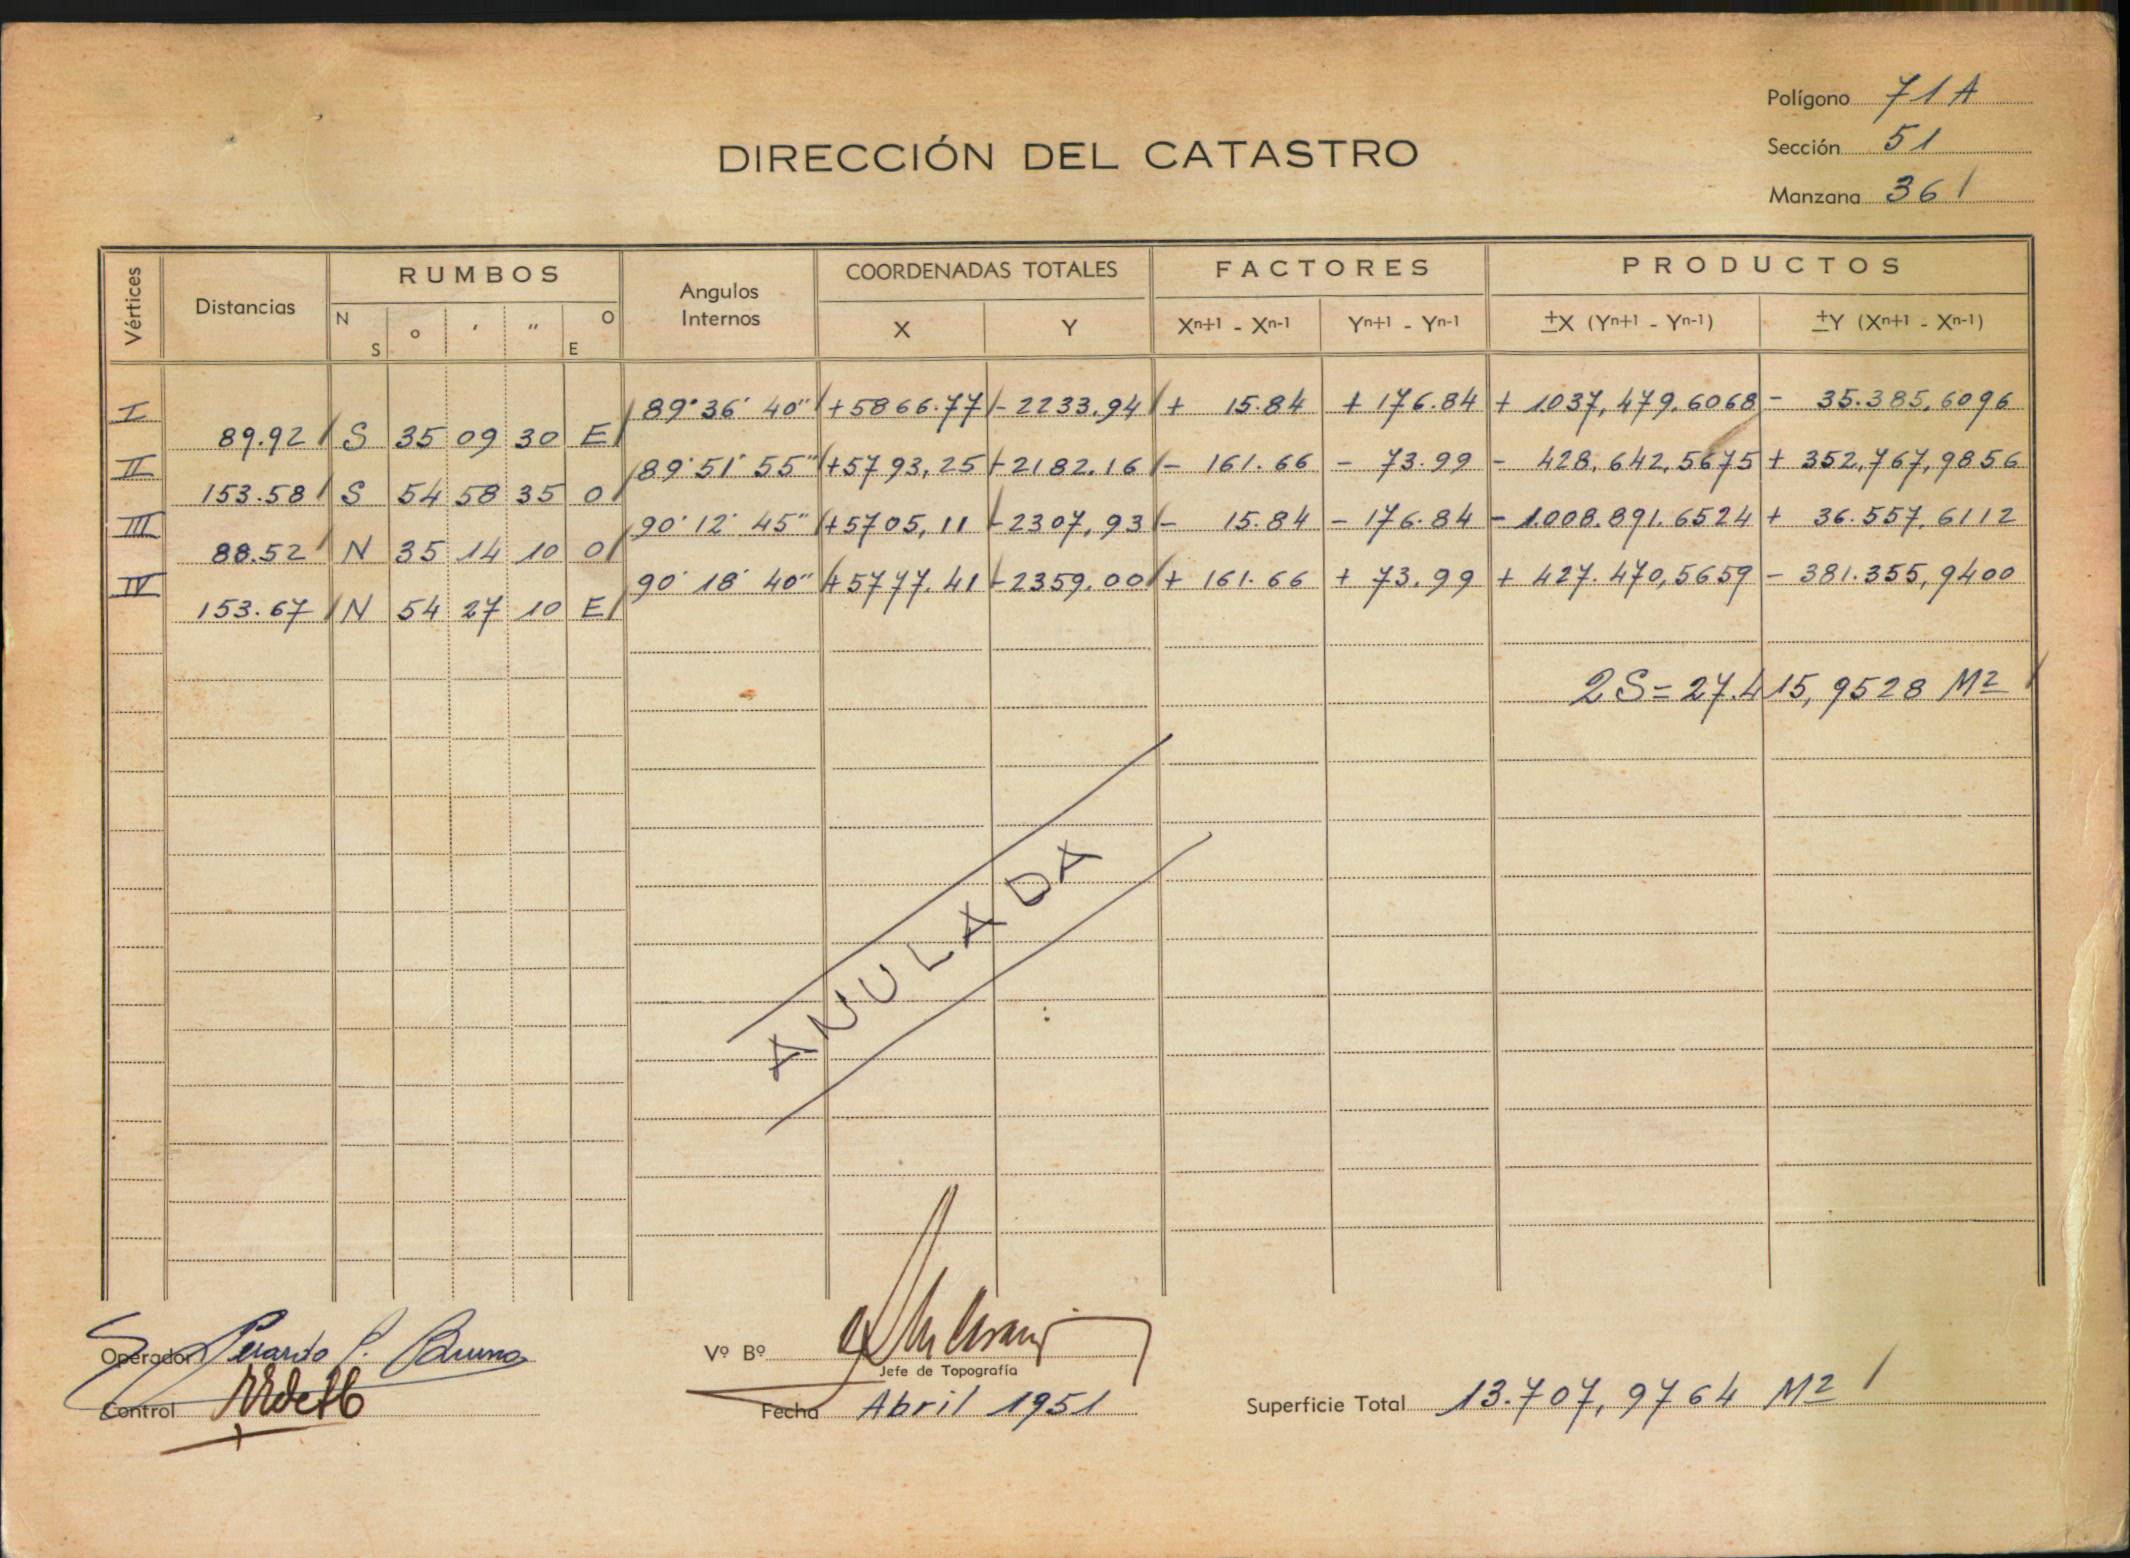 Polígono 71A
Sección 51
Manzana 361
DIRECCIÓN DEL CATASTRO
Vértices Distancias RUMBOS N S o ′ ″ O E Angulos Internos COORDENADAS TOTALES X Y FACTORES Xn+1 - Xn-1 Yn+1 - Yn-1 PRODUCTOS ±X (Yn+1 - Yn-1) ±Y (Xn+1 - Xn-1)
I 89°36'40" +5866.77 -2233.94 + 15.84 + 176.84 + 1037,479,6068 - 35.385,6096
89.92 S 35 09 30 E
II 89°51'55" +5793,25 -2182.16 - 161.66 - 73.99 - 428,642,5675 + 352,767,9856
153.58 S 54 58 35 O
III 90°12'45" +5705,11 -2307,93 - 15.84 - 176.84 - 1.008.891.6524 + 36.557,6112
88.52 N 35 14 10 O
IV 90°18'40" +5777.41 -2359.00 + 161.66 + 73.99 + 427.470,5659 - 381.355,9400
153.67 N 54 27 10 E
2S = 27.415,9528 M2
ANULADA
Operador P. Bruno
Vº Bº
Jefe de Topografía
Control
Fecha Abril 1951
Superficie Total 13.707,9764 M2